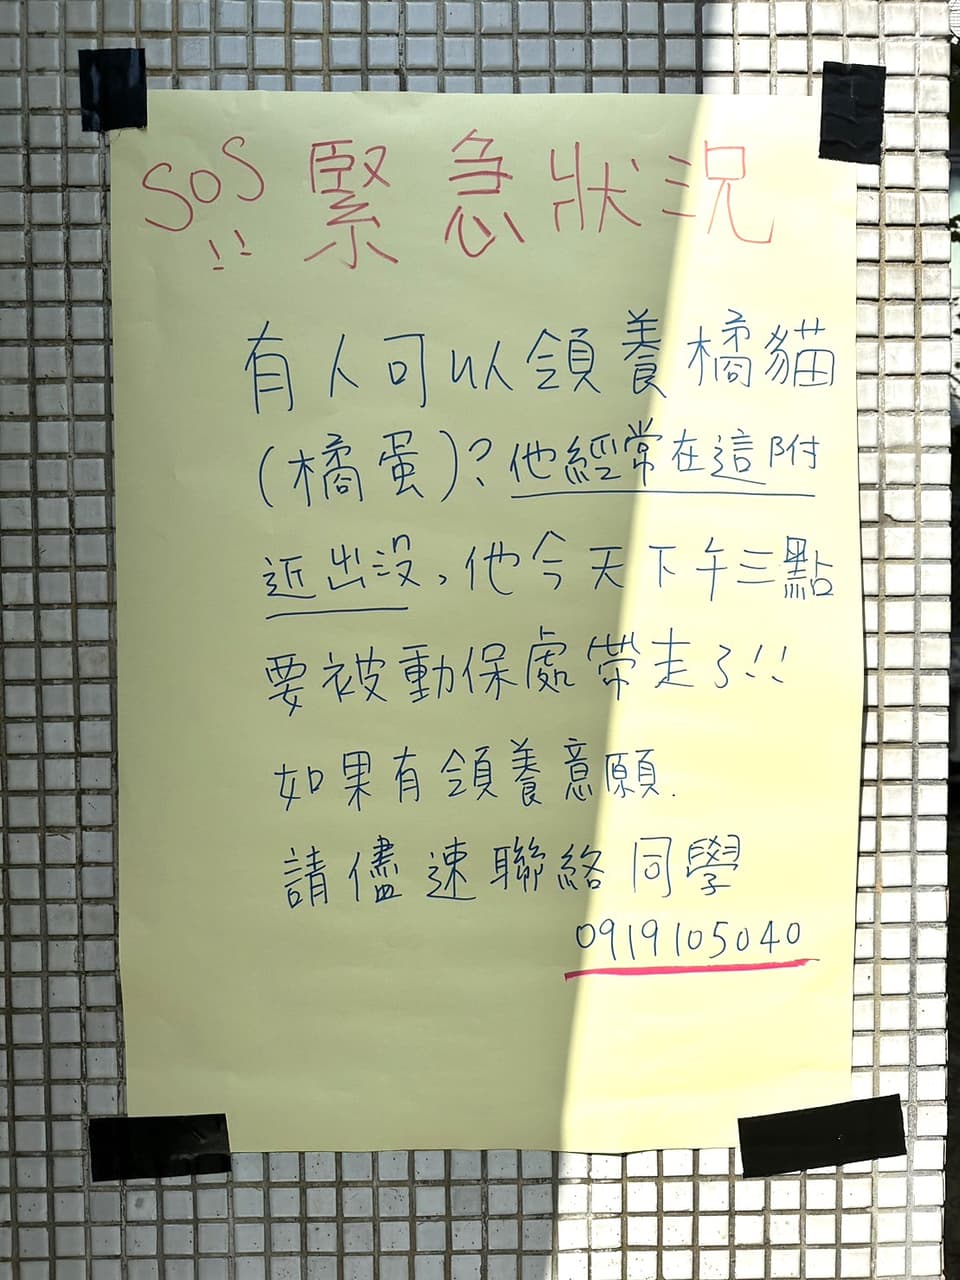 SOS!! 緊急狀況
有人可以領養橘貓
(橘蛋)?他經常在這附
近出沒,他今天下午三點
要被動保處帶走了!!
如果有領養意願.
請儘速聯絡同學
0919105040